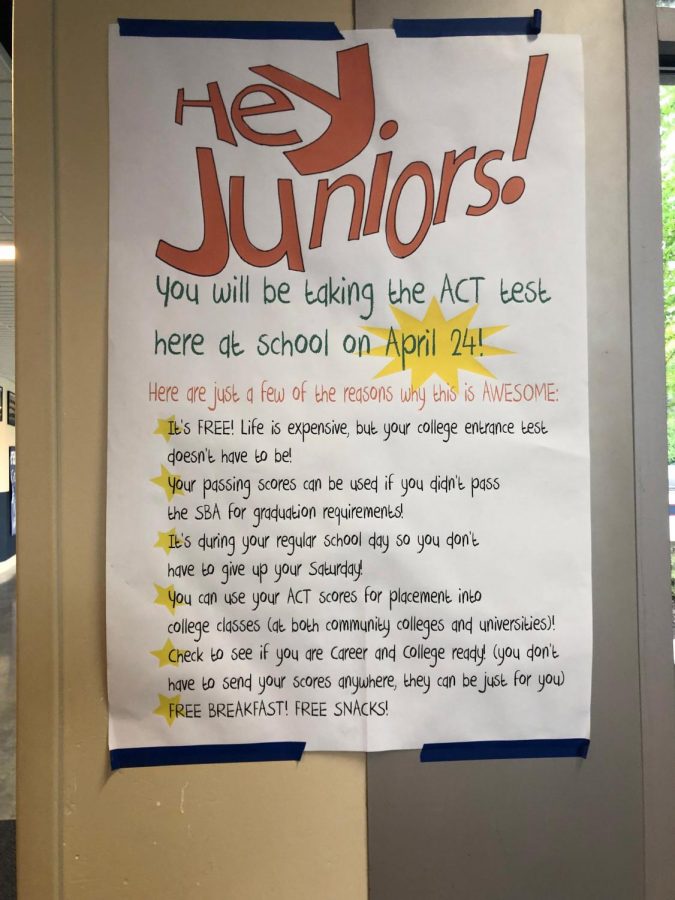 Hey
Juniors!
You will be taking the ACT test
here at school on April 24!
Here are just a few of the reasons why this is AWESOME:
It's FREE! Life is expensive, but your college entrance test
doesn't have to be!
Your passing scores can be used if you didn't pass
the SBA for graduation requirements!
It's during your regular school day so you don't
have to give up your Saturday!
You can use your ACT scores for placement into
college classes (at both community colleges and universities)!
Check to see if you are Career and College ready! (you don't
have to send your scores anywhere, they can be just for you)
FREE BREAKFAST! FREE SNACKS!